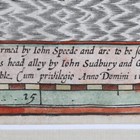 rmed by Iohn Speede and are to be so
s head alley by Iohn Sudbury and G
ble. Cum privilegio Anno Domini 16
15